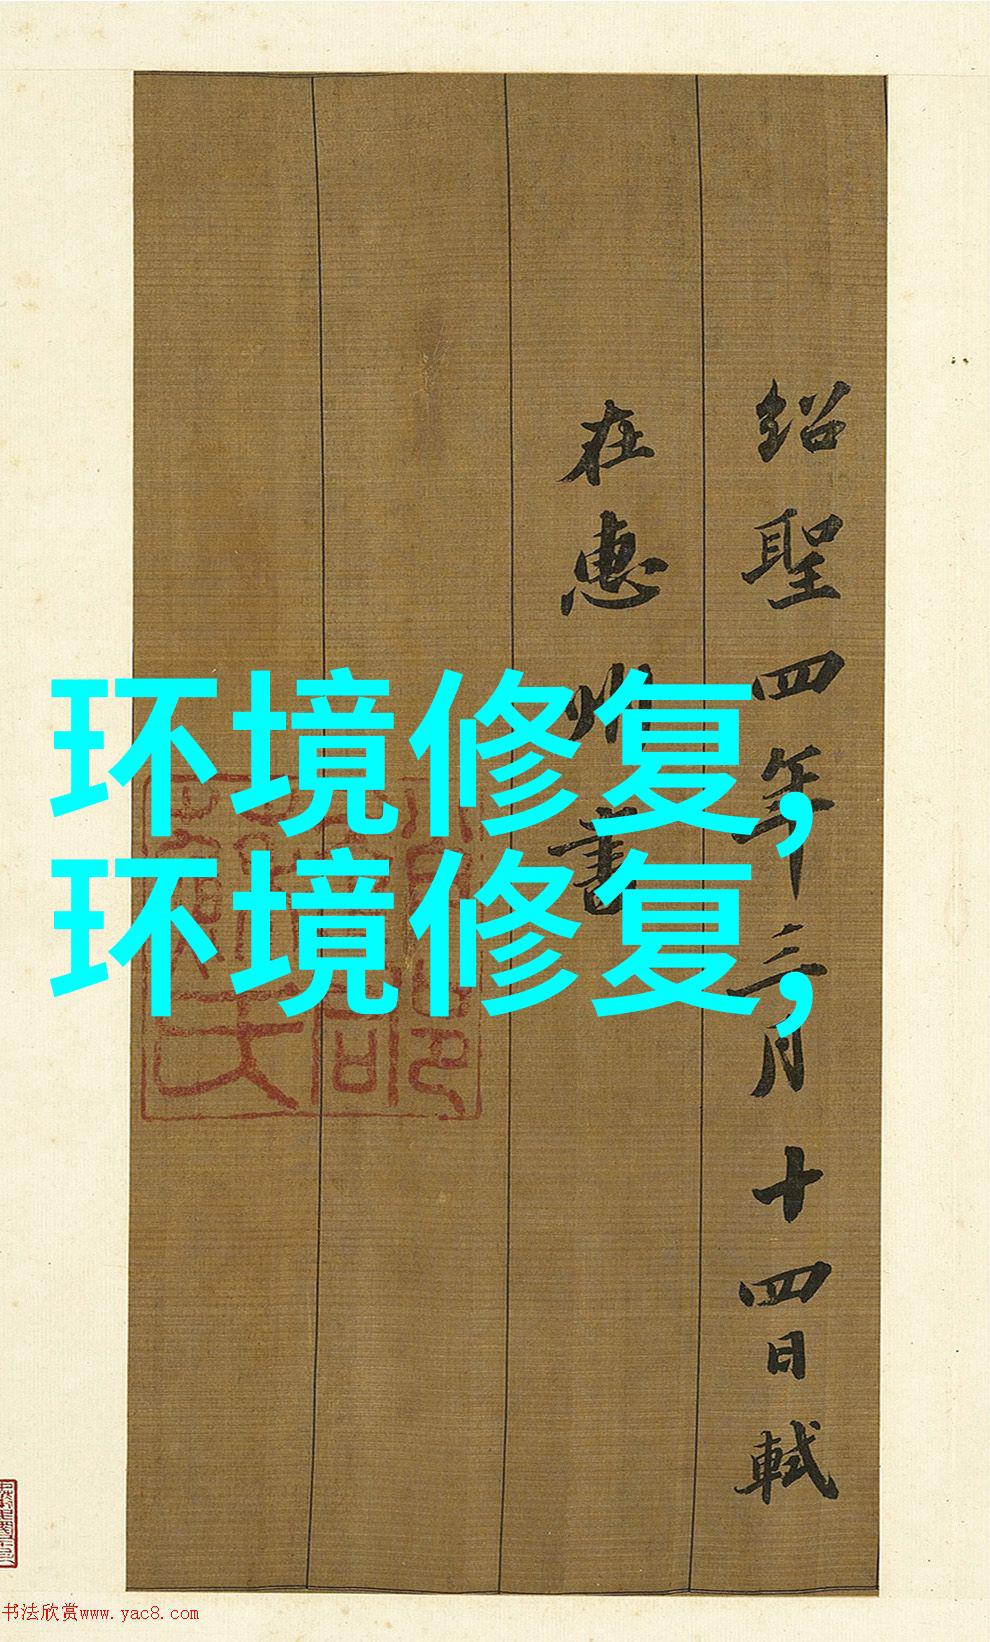 紹聖四年三月十四日軾
在惠州書
环境修复,
环境修复,
书法欣赏www.yac8.com